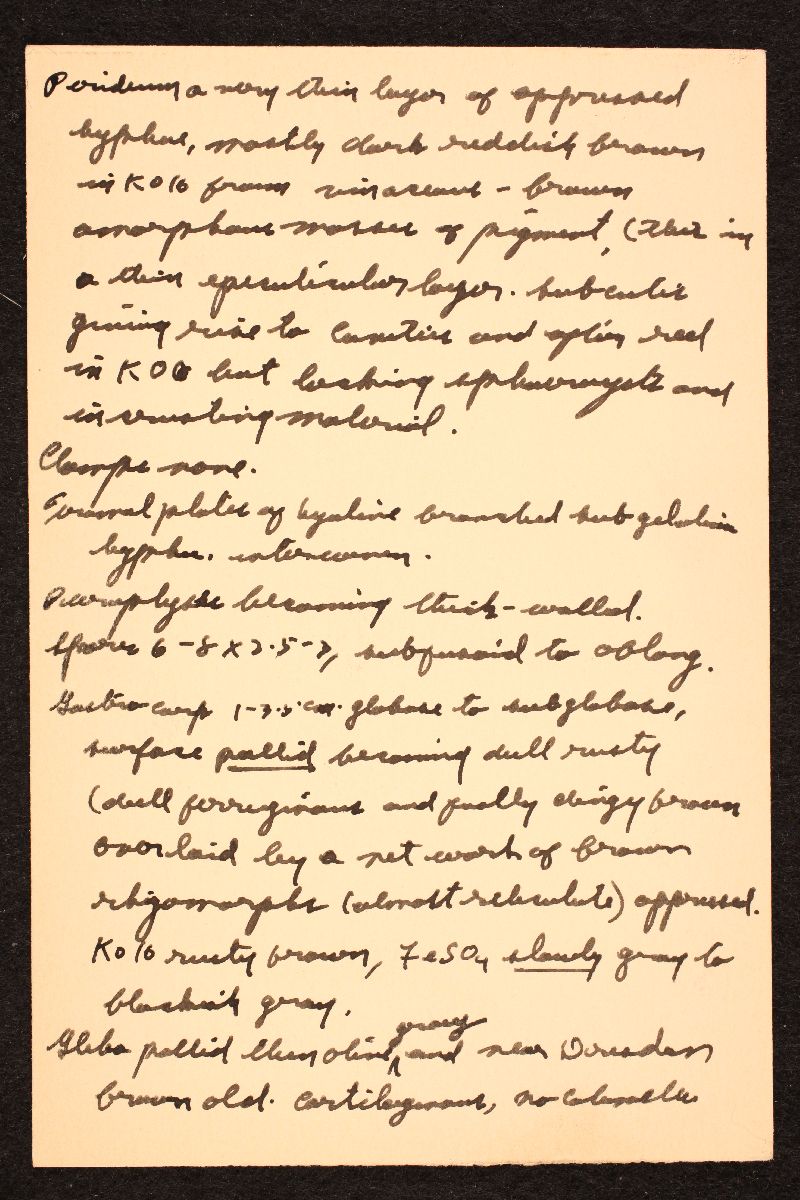 Peridium a very thin layer of appressed
hyphae, mostly dark reddish brown
in KOH from vinaceous-brown
amorphous masses of pigment, (this in
a thin epicuticular layer. subcutis
giving rise to cavities and often red
in KOH but lacking sphaerocysts and
incrusting material.
Clamps none.
Tramal plates of hyaline branched subgelatin
hyphae. interwoven.
becoming thick-walled.
Spores 6-8 x 2.5-3, subfusoid to oblong.
Gastrocarp 1-3.5 cm. globose to subglobose,
surface pallid becoming dull rusty
(dull ferruginous and finally dingy brown
overlaid by a net work of brown
rhizomorphs (almost reticulate) appressed.
KOH rusty brown, FeSO4 slowly gray to
blackish gray.
Gleba pallid then olive gray and near Dresden
brown old. cartilaginous, no columella